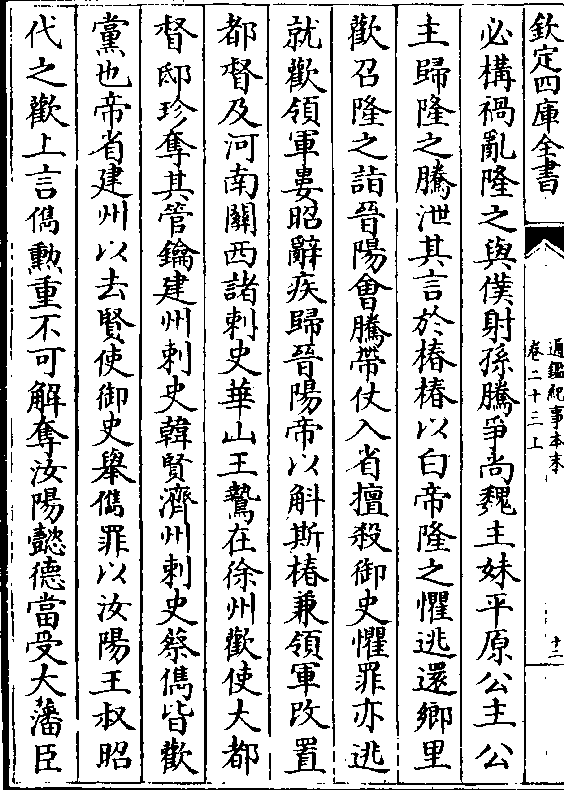 欽定四庫全書
通鑑紀事本末
卷二十三上
十二
必構禍亂隆之與僕射孫騰爭尚魏主妹平原公主公
主歸隆之騰泄其言於椿椿以白帝隆之懼逃還鄉里
歡召隆之詣晉陽會騰帶仗入省擅殺御史懼罪亦逃
就歡領軍婁昭辭疾歸晉陽帝以斛斯椿兼領軍改置
都督及河南關西諸刺史華山王鷙在徐州歡使大都
督邸珍奪其管鑰建州刺史韓賢濟州刺史蔡儁皆歡
黨也帝省建州以去賢使御史舉儁罪以汝陽王叔昭
代之歡上言儁勳重不可解奪汝陽懿德當受大藩臣